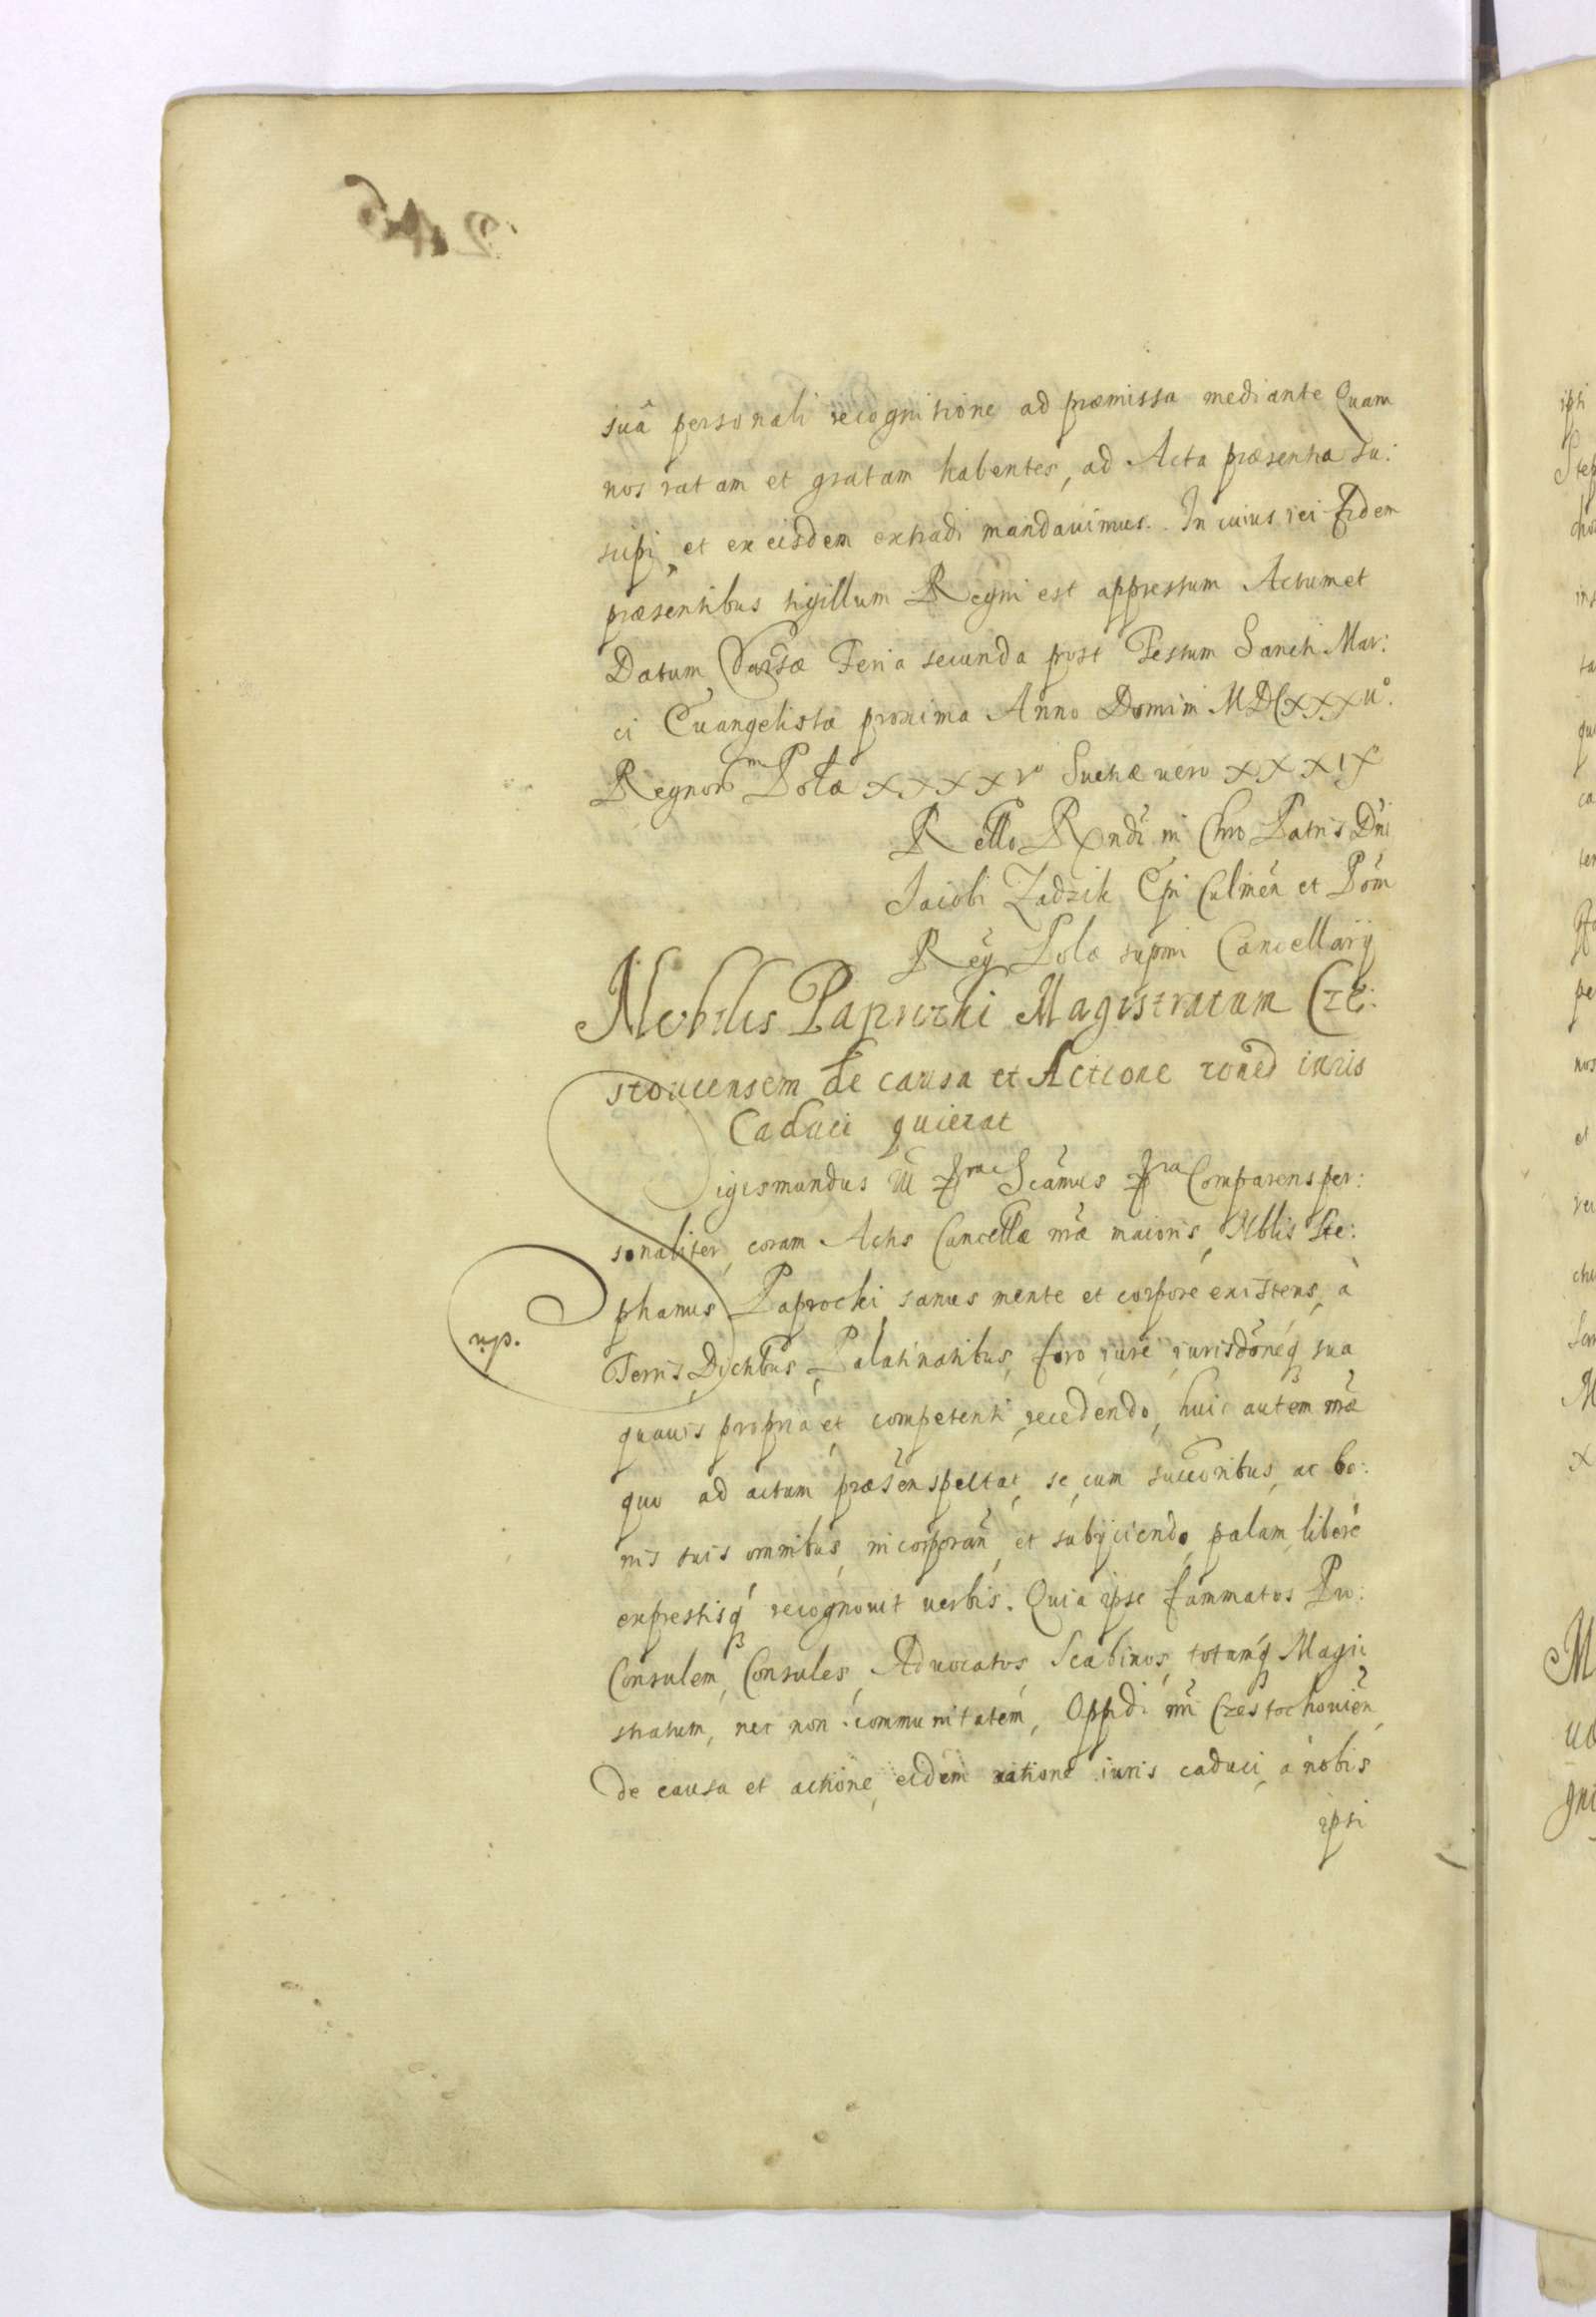 suâ personali recognitione ad præmissa mediante Quam
nos ratam et gratam habentes, ad Acta præsentia su:
scipi, et ex eisdem extradi mandauimus. In cuius rei fidem
præsentibus sigillum Regni est appressum Actum et
Datum Varsæ Feria secunda post Festum Sancti Mar:
ci Euangelistæ proxima Anno Domini MDCXXXII°.
Regnorm Polæ XXXXV° Sueciæ vero XXXIX
Rello Rxndi in Chro Patris Dni
Jacobi Zadzik Epi Culmen et Pom
Reg Polæ supmi Cancellarij
Nobilis Paprocki Magistratum Czę:
stoviensem de causa et Actione roned iuris
Caduci quietat
Sigismundus III etc Scamus etc Comparens per:
sonaliter, coram Actis Cancellæ nræ maioris, Nblis Ste:
phanus Paprocki sanus mente et corpore existens, à
Terris, Dictibus, Palatinatibus, foro iure iurisdoneq sua
np.
quauis propria et competenti recedendo, huic autem nræ
quo ad actum præsen spectat, se cum succoribus, ac bo:
nis suis omnibus, incorporan et subijciendo, palam libere
expressisq recognouit uerbis. Quia ipse fammatos Pro:
Consulem, Consules, Aduocatos, Scabinos, totumq Magi:
stratum, nec non communitatem, Oppidi nri Czestochouien
de causa et actione, eidem ratione iuris caduci, a nobis
ipsi